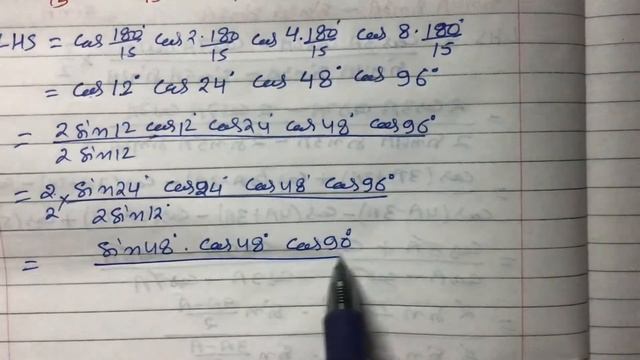 LHS = cos 180°/15 cos 2·180°/15 cos 4·180°/15 cos 8·180°/15
= cos 12° cos 24° cos 48° cos 96°
= 2 sin 12 cos 12° cos 24° cos 48° cos 96° / 2 sin 12
= 2/2 × sin 24° cos 24° cos 48° cos 96° / 2 sin 12°
= sin 48° · cos 48° cos 90°